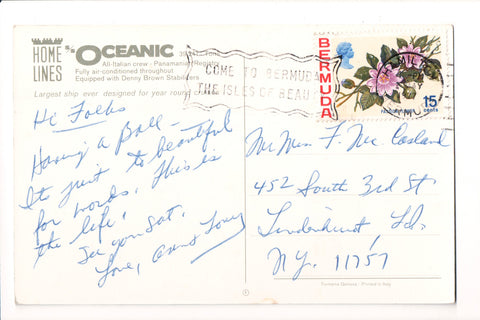 HOME LINES
s/s OCEANIC 39,241 Tons
All-Italian crew - Panamanian Registry
Fully air-conditioned throughout
Equipped with Denny Brown Stabilizers
Largest ship ever designed for year round
COME TO BERMUDA
THE ISLES OF BEAU
BERMUDA
15
cents
Hi Folks
Having a Ball -
Its just to beautiful
for words. This is
the life.
See you Sat.
Love,
Mr Mrs F. Mc Casland
452 South 3rd St
Lindenhurst, Ld.
N.Y. 11757
Printed in Italy